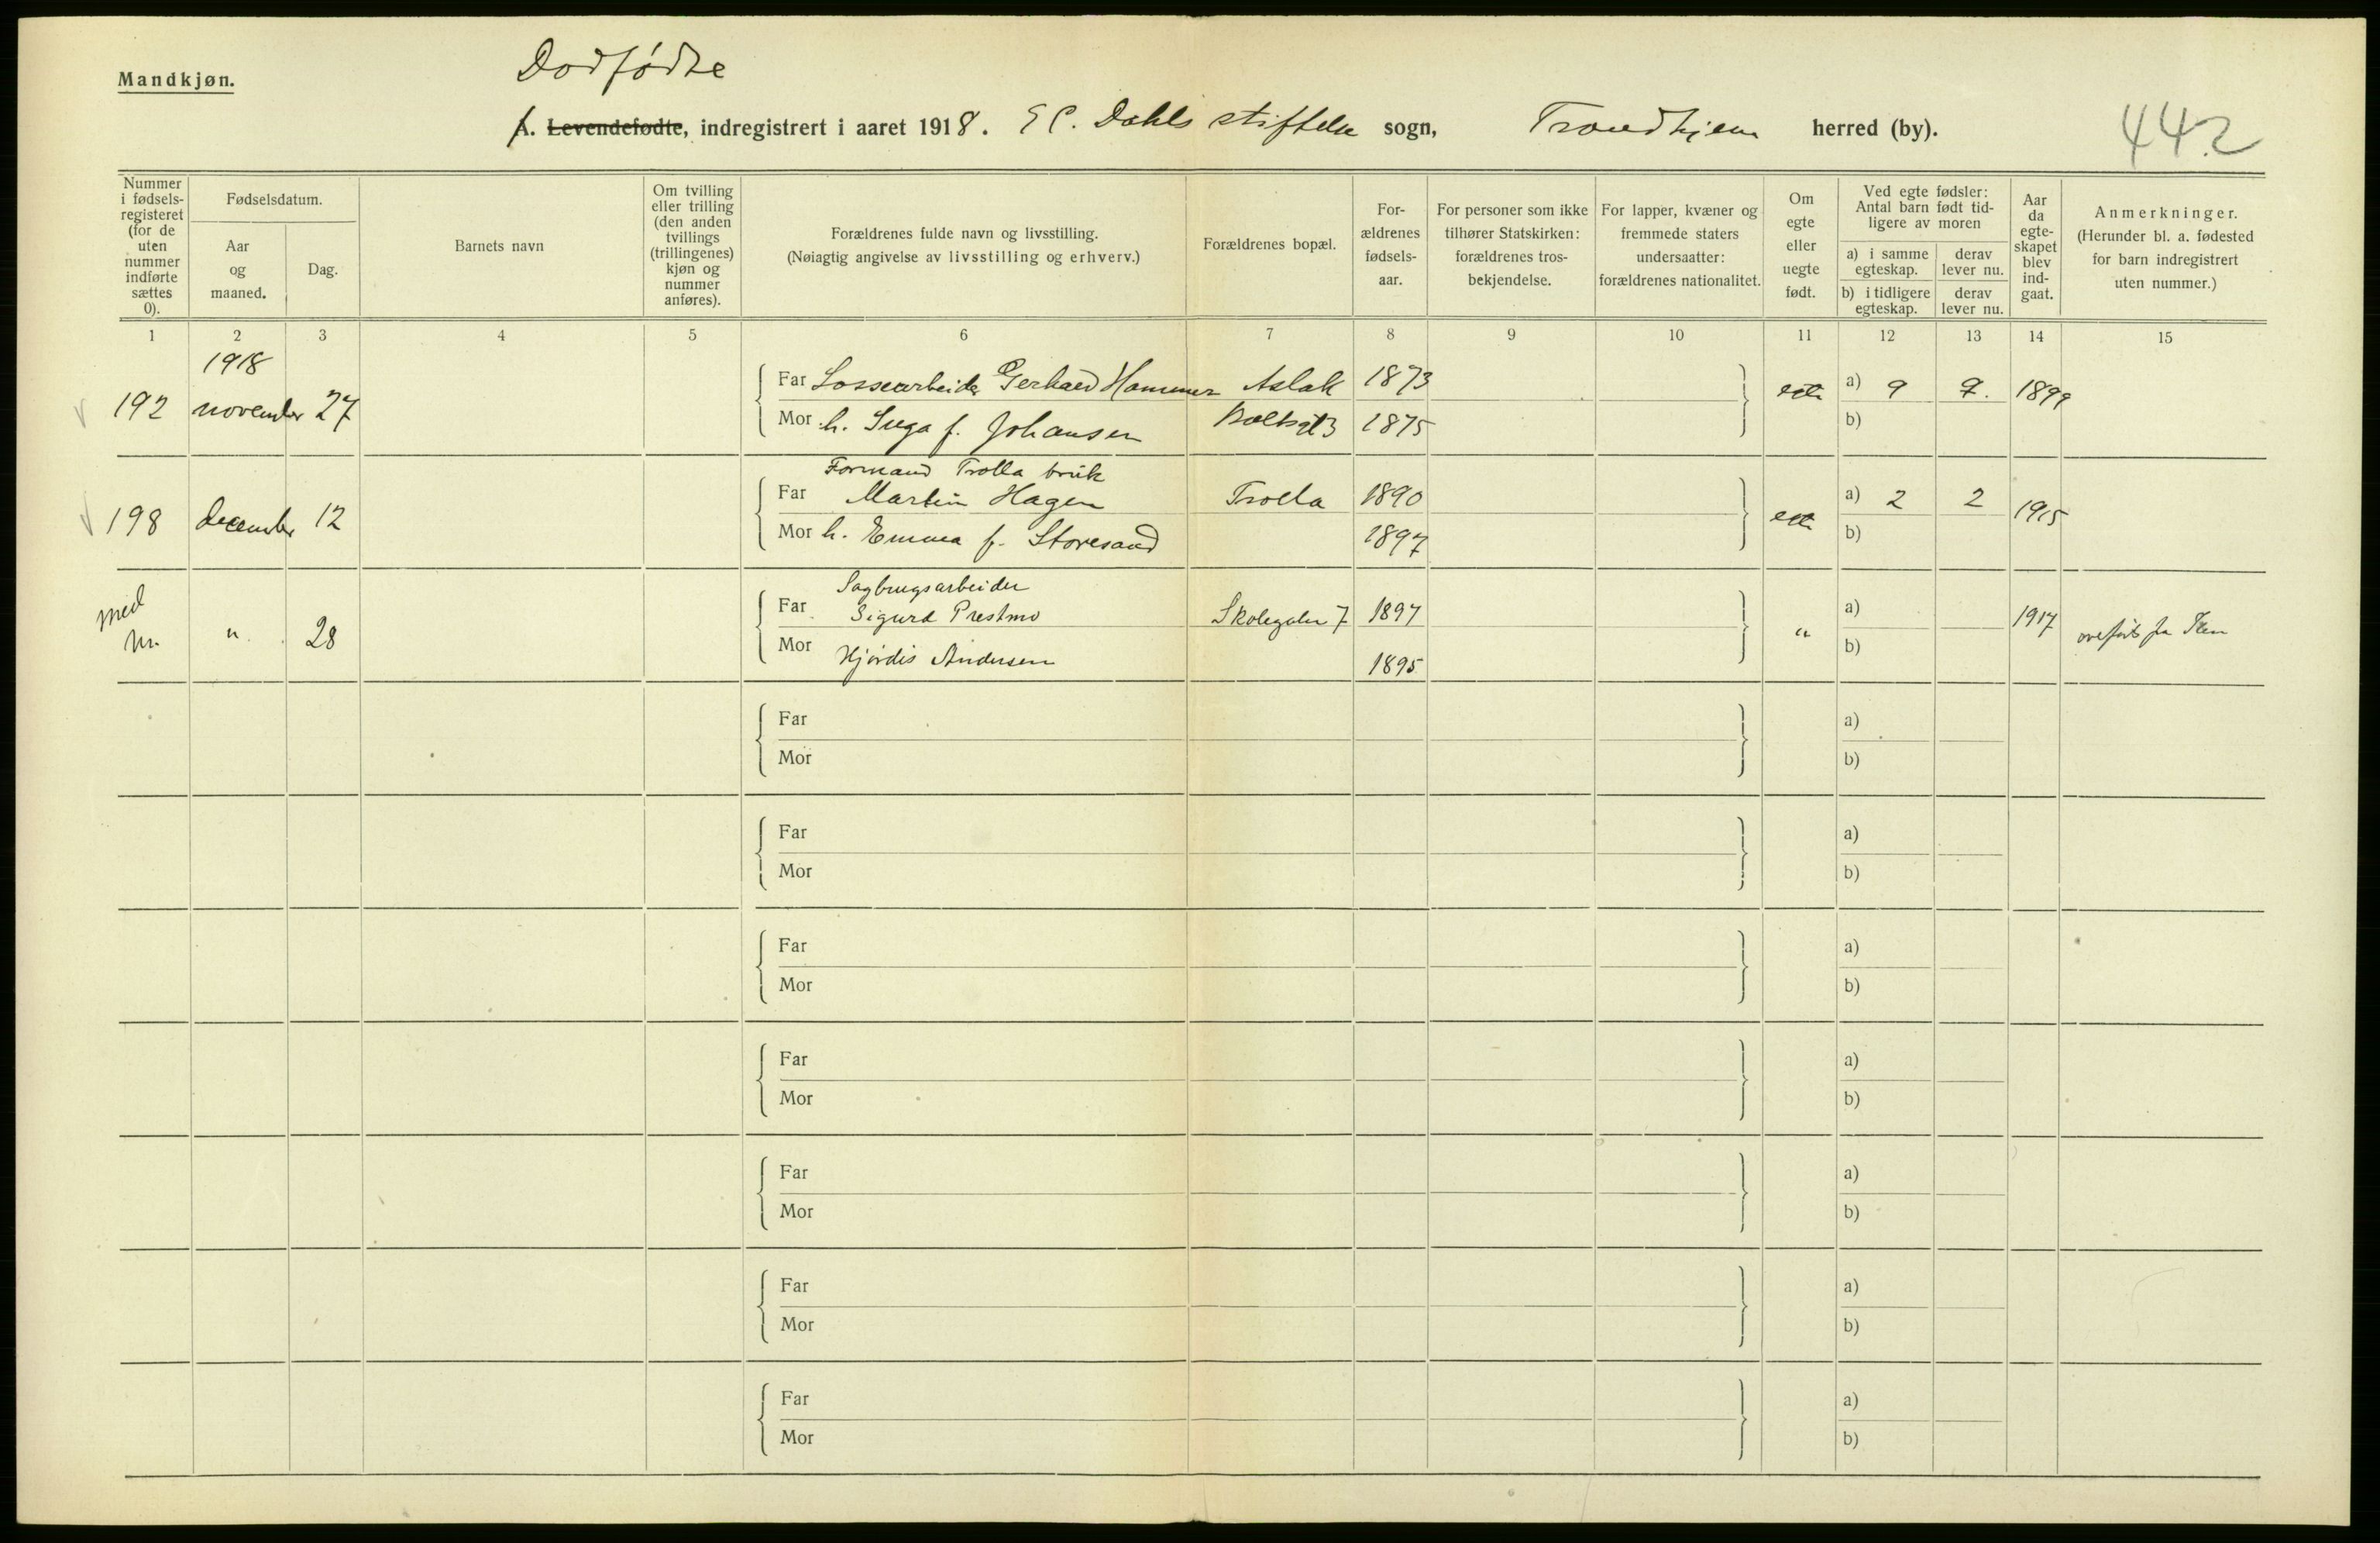 Mandkjøn.
Dodfødte
A. Levendefødte, indregistrert i aaret 1918. E C. Dahls stiftelse sogn, Trondhjem herred (by).
442
Nummer i fødsels-registeret (for de uten nummer indførte sættes 0).
Fødselsdatum.
Aar og maaned.
Dag.
Barnets navn
Om tvilling eller trilling (den anden tvillings (trillingenes) kjøn og nummer anføres).
Forældrenes fulde navn og livsstilling.
(Nøiagtig angivelse av livsstilling og erhverv.)
Forældrenes bopæl.
For-ældrenes fødsels-aar.
For personer som ikke tilhører Statskirken: forældrenes tros-bekjendelse.
For lapper, kvæner og fremmede staters undersaatter: forældrenes nationalitet.
Om egte eller uegte født.
Ved egte fødsler: Antal barn født tid-ligere av moren
a) i samme egteskap.
derav lever nu.
b) i tidligere egteskap.
derav lever nu.
Aar da egte-skapet blev ind-gaat.
Anmerkninger.
(Herunder bl. a. fødested for barn indregistrert uten nummer.)
1 2 3 4 5 6 7 8 9 10 11 12 13 14 15
1918
Far Lossearbeider Gerhard Hammer Aslak 1873 a) 9 9. 1899
192 november 27 egte
Mor h. Inga f. Johansen 1875 b)
Formand Trolla bruk
Far Martin Hagen Trolla 1890 a) 2 2 1915
198 december 12 egte
Mor h. Emma f. Storesand 1897 b)
Sagbrugsarbeider
Far Sigurd Prestmo Skolegaten 7 1897 a) 1917
med nr. " 28 "
Mor Hjørdis Andersen 1895 b)
Far a)
Mor b)
Far a)
Mor b)
Far a)
Mor b)
Far a)
Mor b)
Far a)
Mor b)
Far a)
Mor b)
Far a)
Mor b)